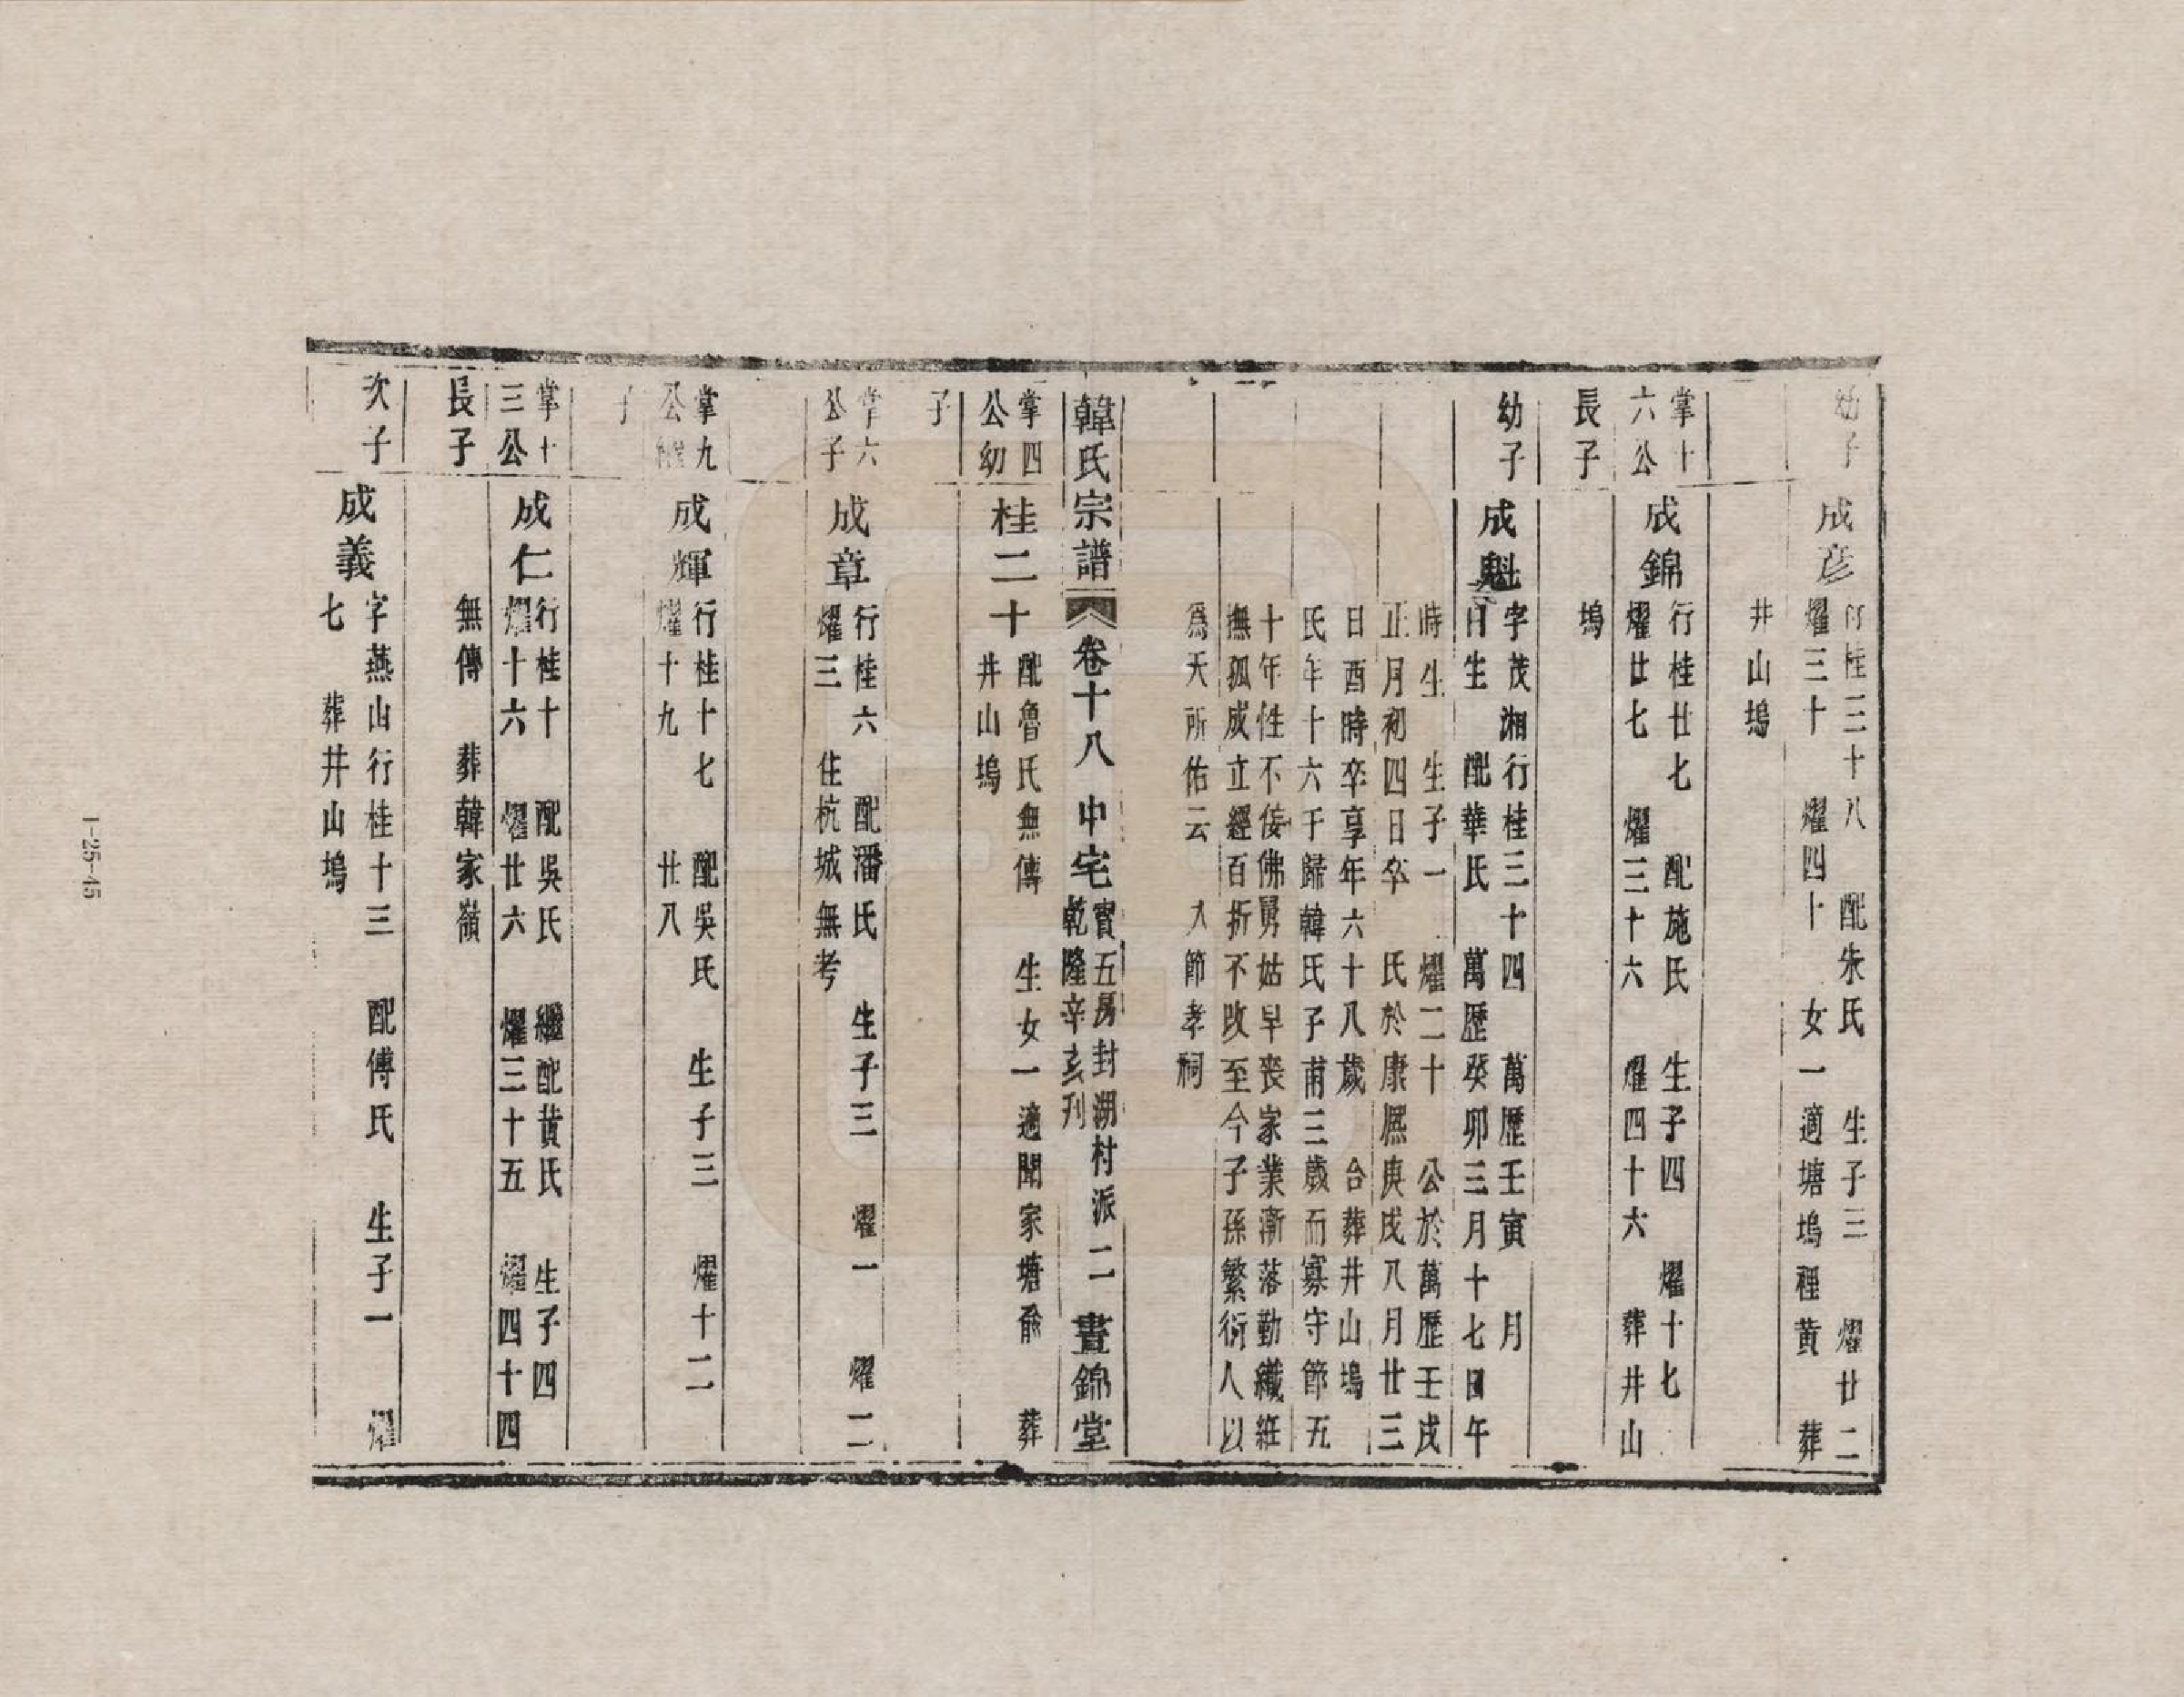 幼子
成彥
行桂三十八　配朱氏　生子三　燿廿二
燿三十　燿四十　女一適塘塢裡黄　葬
井山塢
掌十
六公
長子
成錦
行桂廿七　配施氏　生子四　燿十七
燿廿七　燿三十六　燿四十六　葬井山
塢
幼子
成魁
字茂湘行桂三十四　萬歷壬寅　月
日生　配華氏　萬歷癸卯三月十七日午
時生　生子一　燿二十　公於萬歷壬戌
正月初四日卒　氏於康熈庚戌八月廿三
日酉時卒享年六十八歲　合葬井山塢
氏年十六于歸韓氏子甫三歲而寡守節五
十年性不佞佛舅姑早丧家業漸落勤織絍
撫孤成立經百折不改至今子孫繁衍人以
為天所佑云　入節孝祠
韓氏宗譜　卷十八　中宅
實五房封湖村派　二
乾隆辛亥刋
晝錦堂
掌四
公幼
子
桂二十
配魯氏無傳　生女一適聞家塘俞　葬
井山塢
掌六
公子
成章
行桂六　配潘氏　生子三　燿一　燿二
燿三　住杭城無考
掌九
公繼
子
成輝
行桂十七　配吳氏　生子三　燿十二
燿十九　廿八
掌十
三公
長子
成仁
行桂十　配吳氏　繼配黄氏　生子四
燿十六　燿廿六　燿三十五　燿四十四
無傳　葬韓家嶺
次子
成義
字燕山行桂十三　配傅氏　生子一　燿
七　葬井山塢
1-25-15